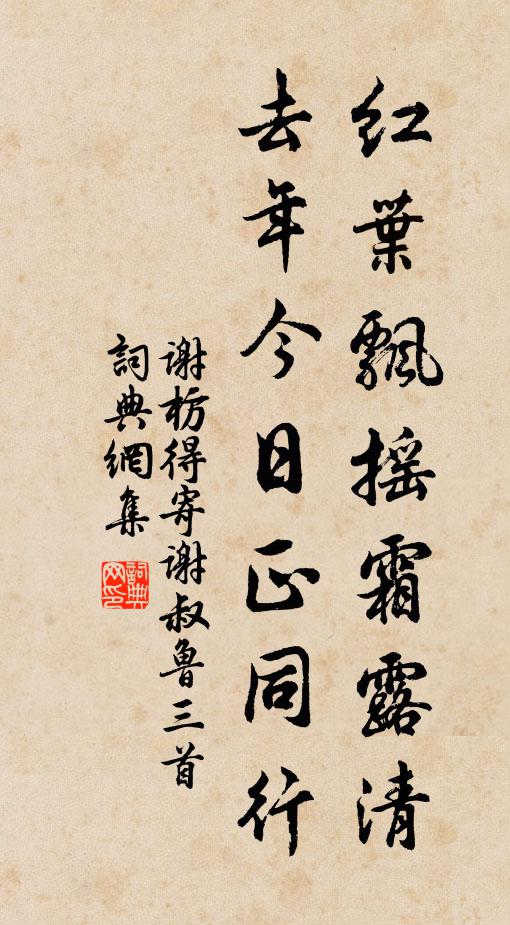 红葉飄摇霜露清
去年今日正同行
谢枋得寄谢叔鲁三首
詞典網集
詞典网印